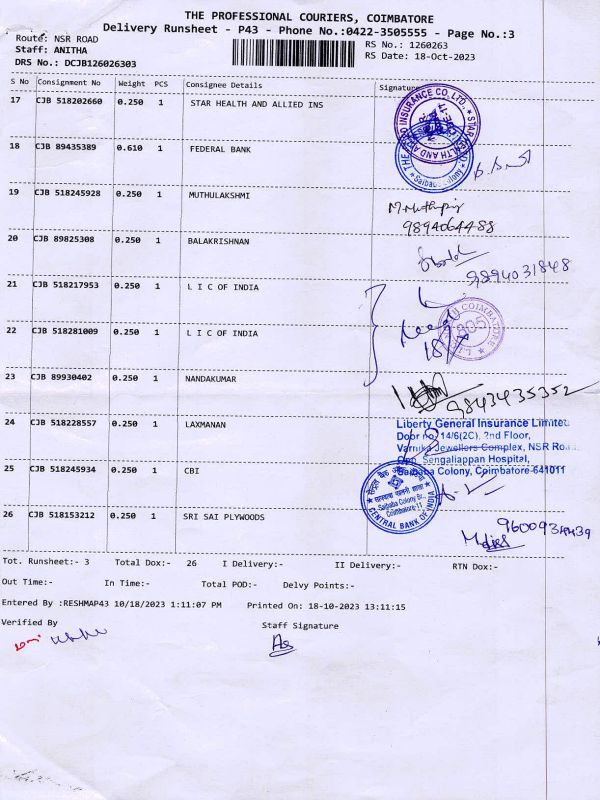 THE PROFESSIONAL COURIERS, COIMBATORE
Delivery Runsheet - P43 - Phone No.:0422-3505555 - Page No.:3
Route: NSR ROAD
RS No.: 1260263
Staff: ANITHA
RS Date: 18-Oct-2023
DRS No.: DCJB126026303
S No Consignment No Weight PCS Consignee Details Signature
17 CJB 518202660 0.250 1 STAR HEALTH AND ALLIED INS
18 CJB 89435389 0.610 1 FEDERAL BANK
Saibaba Colony
19 CJB 518245928 0.250 1 MUTHULAKSHMI
9894064488
20 CJB 89825308 0.250 1 BALAKRISHNAN
9894031848
21 CJB 518217953 0.250 1 L I C OF INDIA
22 CJB 518281009 0.250 1 L I C OF INDIA
23 CJB 89930402 0.250 1 NANDAKUMAR
9843435352
24 CJB 518228557 0.250 1 LAXMANAN
Liberty General Insurance Limited
Door no. 14/6(2C), 2nd Floor,
Varnika Jewellers Complex, NSR Road
Opp. Sengaliappan Hospital,
Saibaba Colony, Coimbatore-641011
25 CJB 518245934 0.250 1 CBI
Saibaba Colony Br.
Coimbatore-11
CENTRAL BANK OF INDIA
26 CJB 518153212 0.250 1 SRI SAI PLYWOODS
Tot. Runsheet:- 3 Total Dox:- 26 I Delivery:- II Delivery:- RTN Dox:-
Out Time:- In Time:- Total POD:- Delvy Points:-
Entered By :RESHMAP43 10/18/2023 1:11:07 PM Printed On: 18-10-2023 13:11:15
Verified By Staff Signature